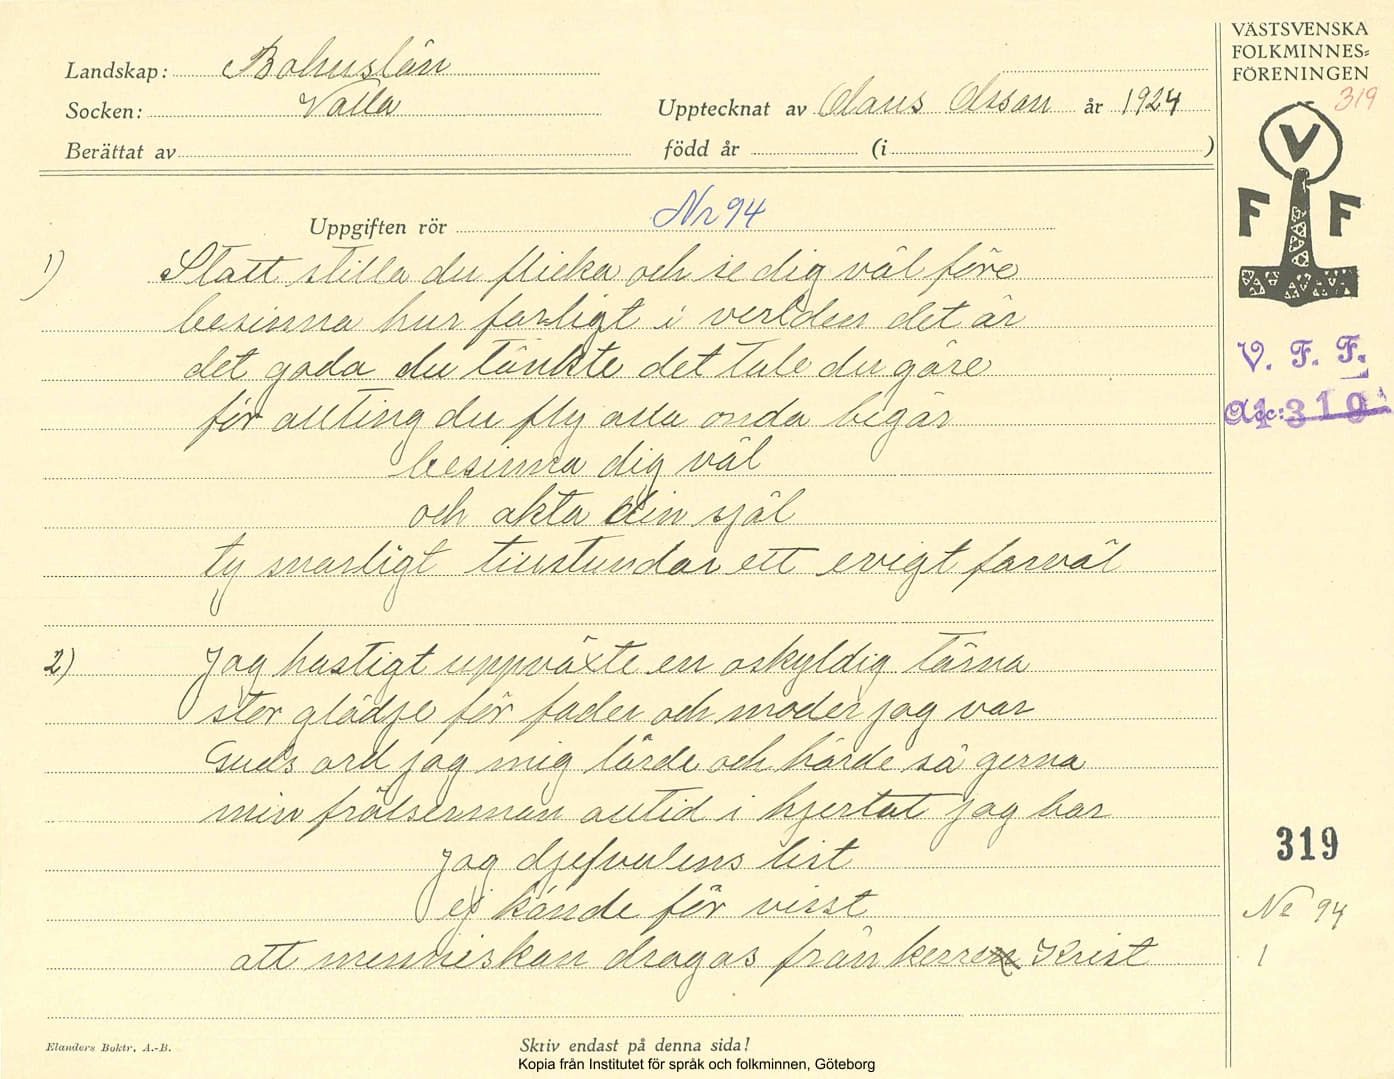 Landskap: Bohuslän
Socken: Valla
Upptecknat av Olaus Olsson år 1924
Berättat av
född år (i )
VÄSTSVENSKA
FOLKMINNES=
FÖRENINGEN
319
V
F F
V. F. F.
Acc: 1319
Uppgiften rör Nr 94
1) Statt stilla du flicka och se dig väl före
besinna hur farligt i verlden det är
det goda du tänkte det tale du göre
för allting du fly alla onda begär
besinna dig väl
och akta din själ
ty snarligt tillstundar ett evigt farväl
2) Jag hastigt uppväxte en oskyldig tärna
stor glädje för fader och moder jag var
Guds ord jag mig lärde och hörde så gerna
min frälserman alltid i hjertat jag bar
jag djefvulens list
ej kände för visst
att menniskan dragas från herren Krist
319
No 94
1
Elanders Boktr. A.-B.
Skriv endast på denna sida!
Kopia från Institutet för språk och folkminnen, Göteborg